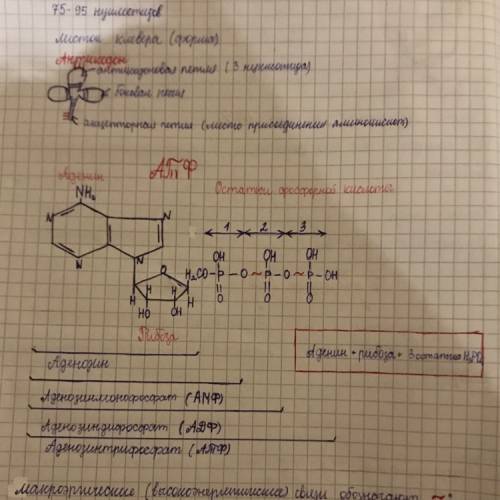 75-95 нуклеотидов
листок клевера (форма)
Антикодон
антикодоновая петля (3 нуклеотида)
боковая петля
акцепторная петля (место присоединения аминокислот)
Аденин
АТФ
Остатки фосфорной кислоты
NH₂
N
N
N
N
1 2 3
OH OH OH
H₂CO-P-O~P-O~P-OH
O O O
O
H H H H
HO OH
Рибоза
Аденин + рибоза + 3 остатка H₃PO₄
Аденозин
Аденозинмонофосфат (АМФ)
Аденозиндифосфат (АДФ)
Аденозинтрифосфат (АТФ)
макроэргические (высокоэнергетические) связи обозначают ~